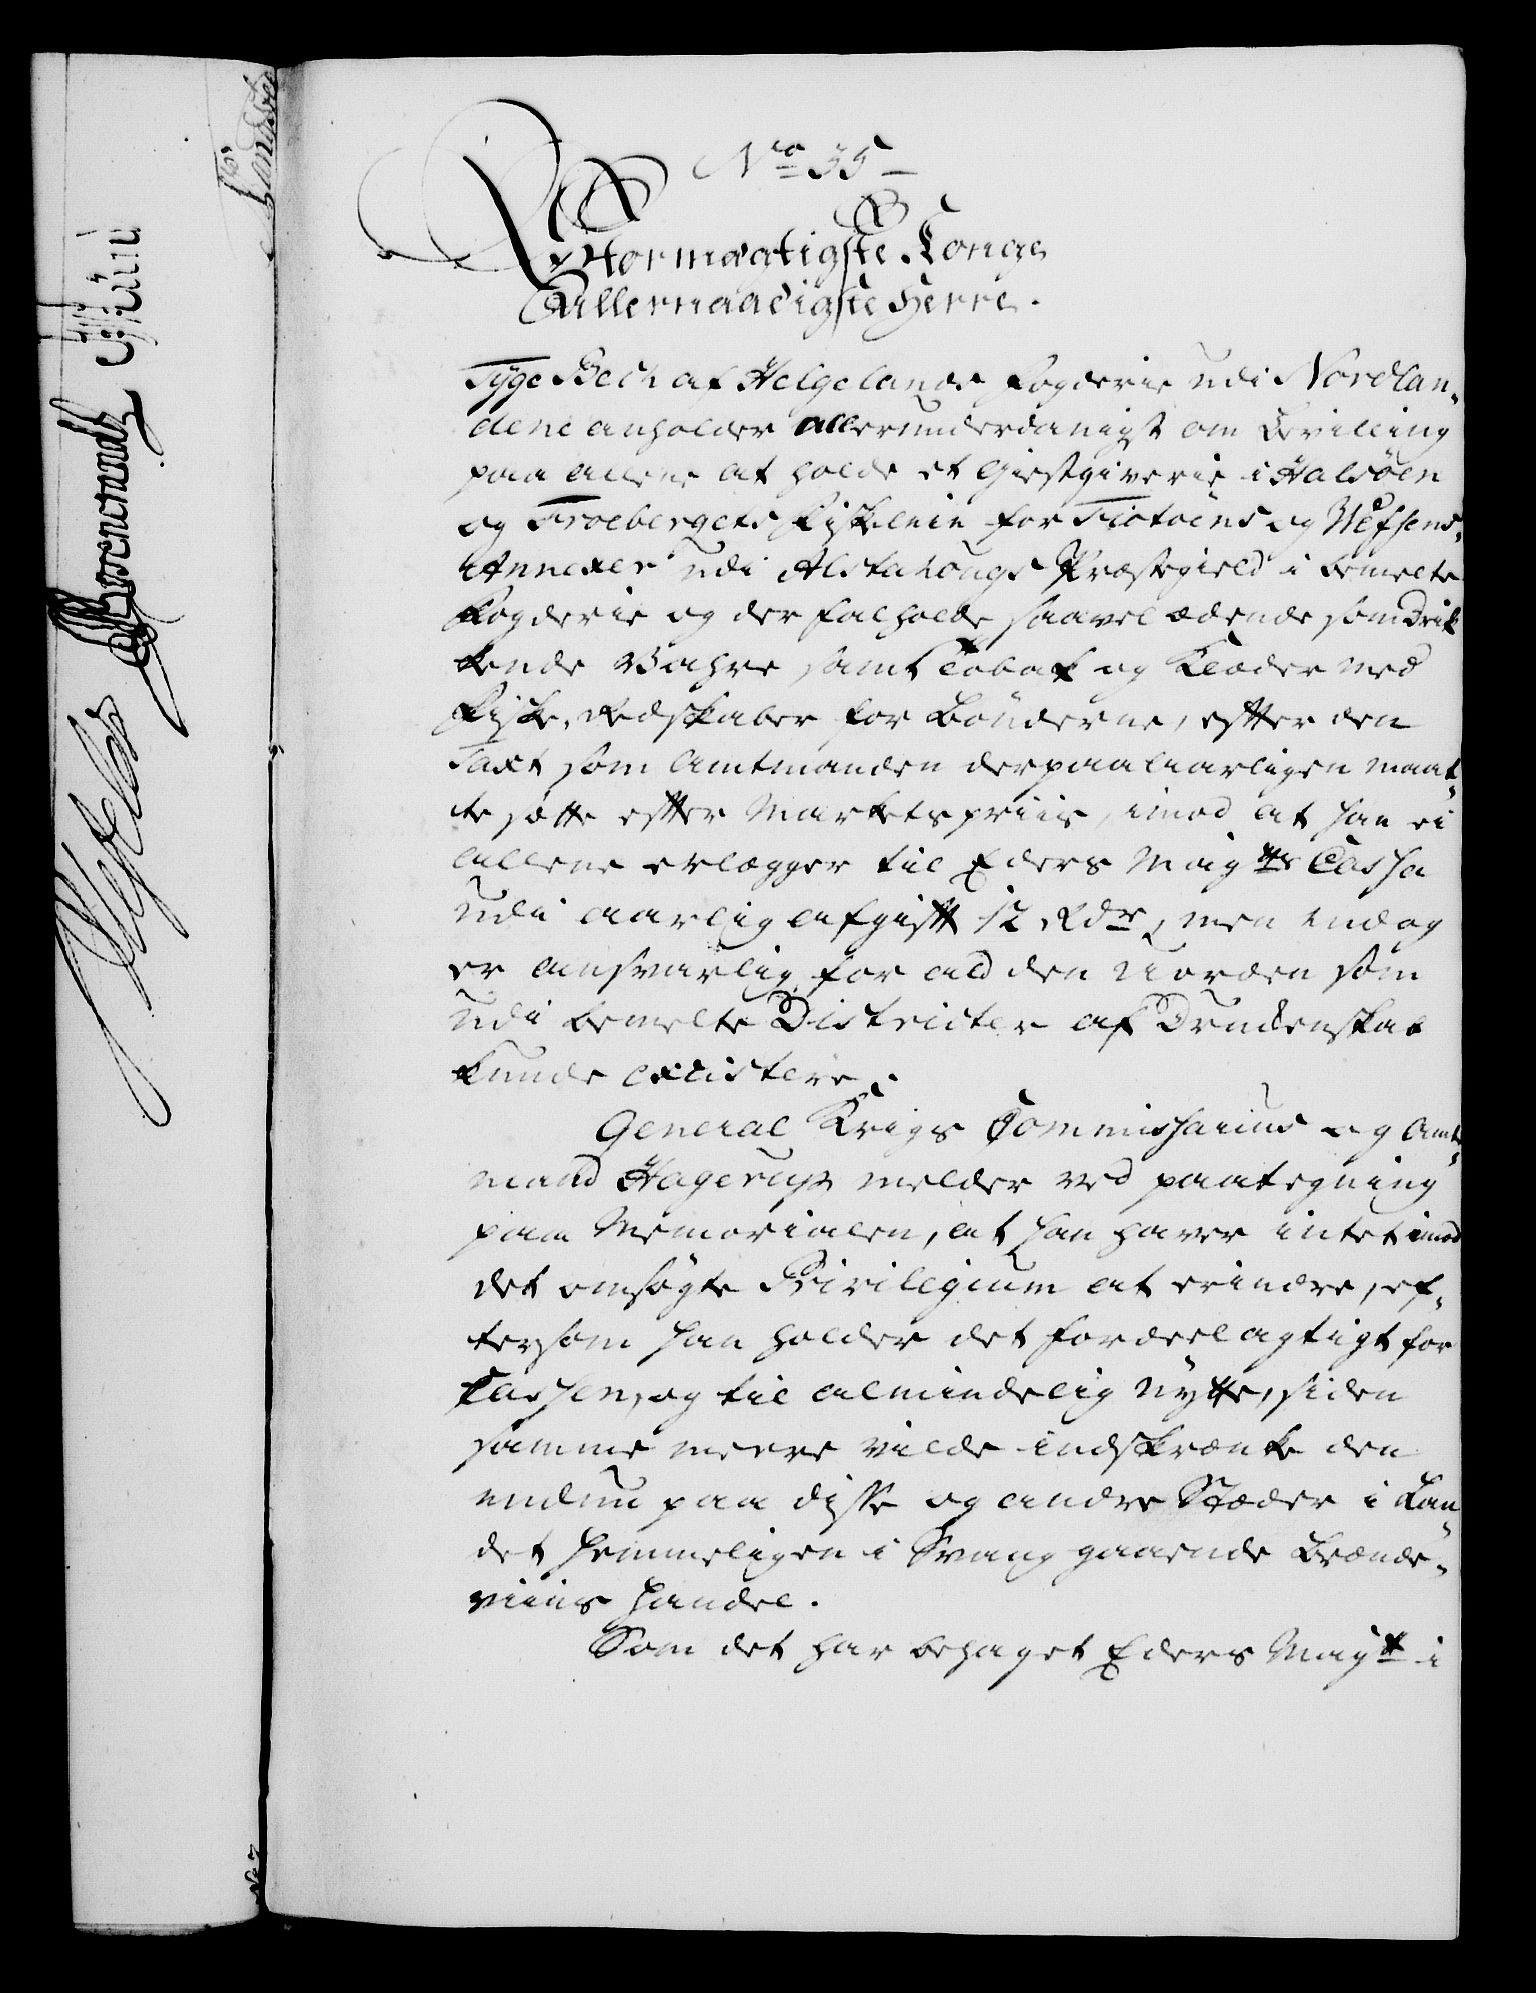 No 35
Stormægtigste Konge
Allernaadigste Herre.
Tyge Bech af Helgelands Fogderie udi Nordlan-
dene anholder allerunderdanigst om Bevilling
paa allene at holde et Giestgiverie i Halsöen
og Froebergets Fiskeleie for Tiotöens og Wefsens
Annexer udi Alstahougs Præstegield i bemelte
Fogderie og der falholde saavel ædende som drik
kende Wahre samt Tobak og Klæder med
Fiske-Redskaber for Bönderne, efter den
Taxt som Amtmanden derpaa aarligen maat-
te sætte efter Markets priis, imod at han ei
allene erlægger til Eders Mayts Cassa
udi aarlig afgift 12 Rdr, men endog
er ansvarlig for ald den Uorden som
udi bemelte Districter af Drukenskab
kunde existere.
General Krigs Commissarius og Amt-
mand Hagerup melder ved paategning
paa Memorialen, at han haver intet imod
det omsögte Privilegium at erindre, ef-
tersom han holder det fordeelagtigt for
Cassen, og til almindelig Nytte, siden
samme meere vilde indskrænke den
endnu paa disse og andre Stæder i Lan-
det hemmeligen i Svang gaaende Brænde-
viins Handel.
Som det har behaget Eders Mayt i